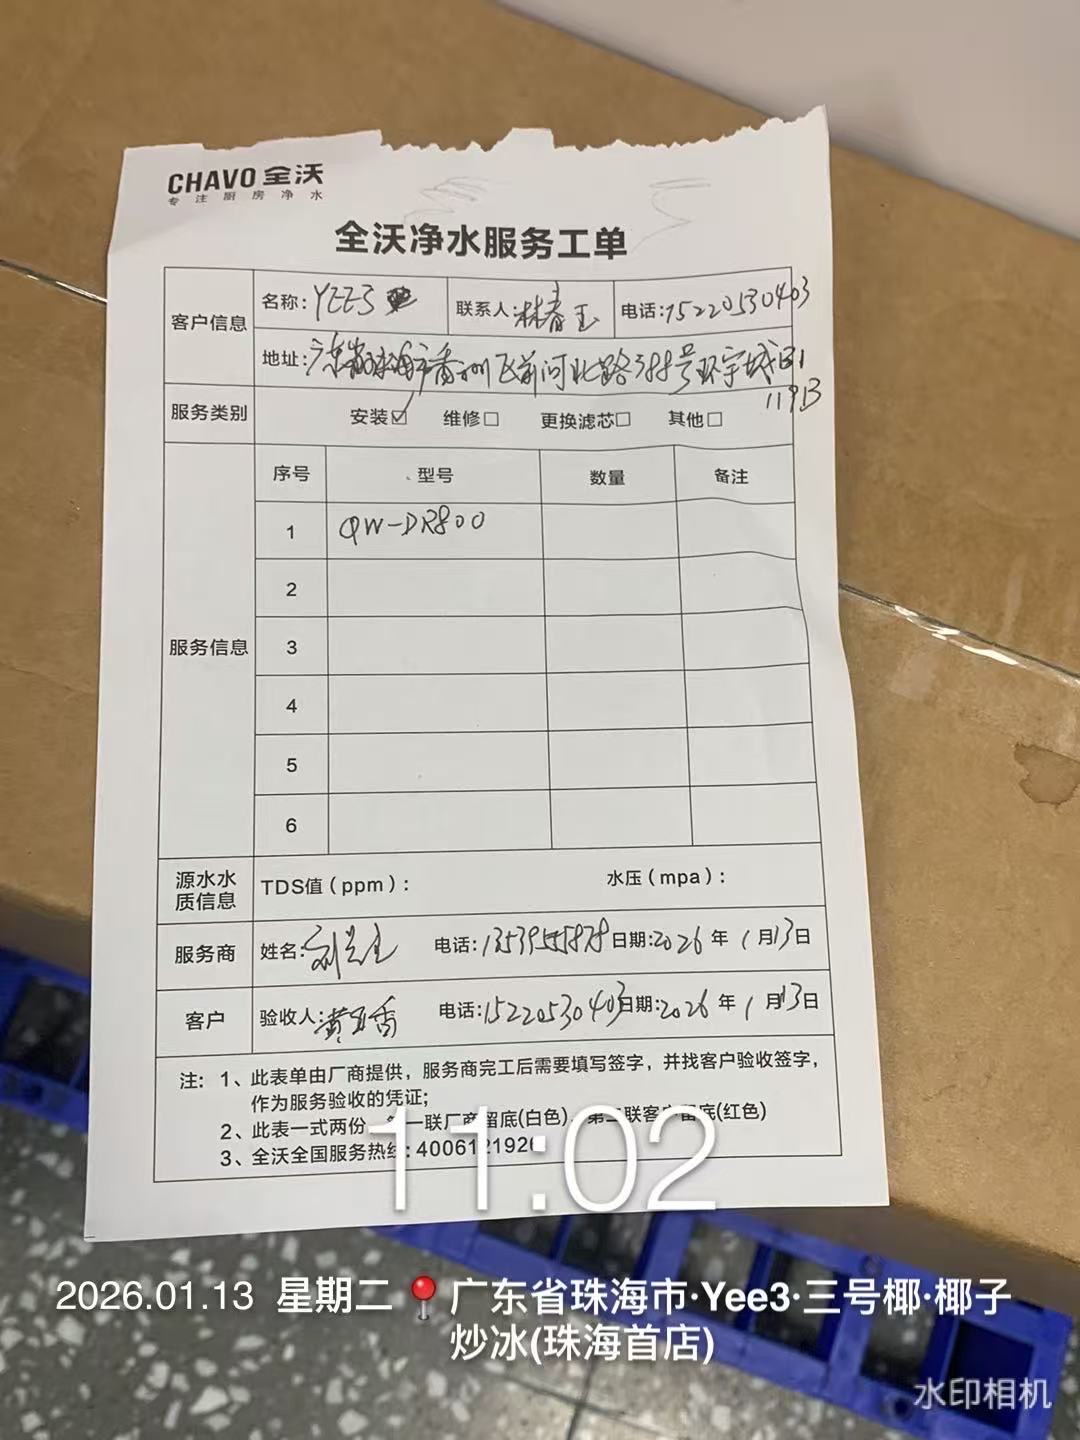 CHAVO 全沃
专注厨房净水
全沃净水服务工单
客户信息
名称: YEE3
联系人: 林春玉
电话: 15220530403
地址: 广东省珠海市香洲区前河北路399号环宇城B1
11913
服务类别
安装☑ 维修☐ 更换滤芯☐ 其他☐
服务信息
序号 型号 数量 备注
1 QW-DR800
2
3
4
5
6
源水水质信息
TDS值(ppm): 水压(mpa):
服务商
姓名: 电话: 13539555878 日期: 2026年1月13日
客户
验收人: 黄玉香 电话: 15220530403 日期: 2026年1月13日
注: 1、此表单由厂商提供，服务商完工后需要填写签字，并找客户验收签字，
作为服务验收的凭证;
2、此表一式两份，第一联厂商留底(白色)、第二联客户留底(红色)
3、全沃全国服务热线: 4006121926
11:02
2026.01.13 星期二 广东省珠海市·Yee3·三号椰·椰子
炒冰(珠海首店)
水印相机